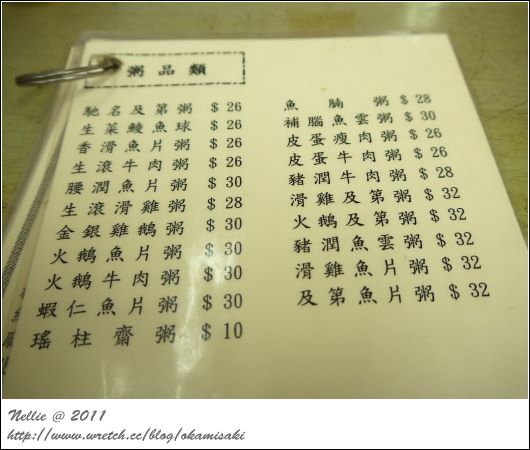 粥品類
馳名及第粥 $ 26
生菜鯪魚球 $ 26
香滑魚片粥 $ 26
生滾牛肉粥 $ 26
腰潤魚片粥 $ 30
生滾滑雞粥 $ 28
金銀雞鵝粥 $ 30
火鵝魚片粥 $ 30
火鵝牛肉粥 $ 30
蝦仁魚片粥 $ 30
瑤柱齋粥 $ 10
魚腩粥 $ 28
補腦魚雲粥 $ 30
皮蛋瘦肉粥 $ 26
皮蛋牛肉粥 $ 26
豬潤牛肉粥 $ 28
滑雞及第粥 $ 32
火鵝及第粥 $ 32
豬潤魚雲粥 $ 32
滑雞魚片粥 $ 32
及第魚片粥 $ 32
Nellie @ 2011
http://www.wretch.cc/blog/okamisaki